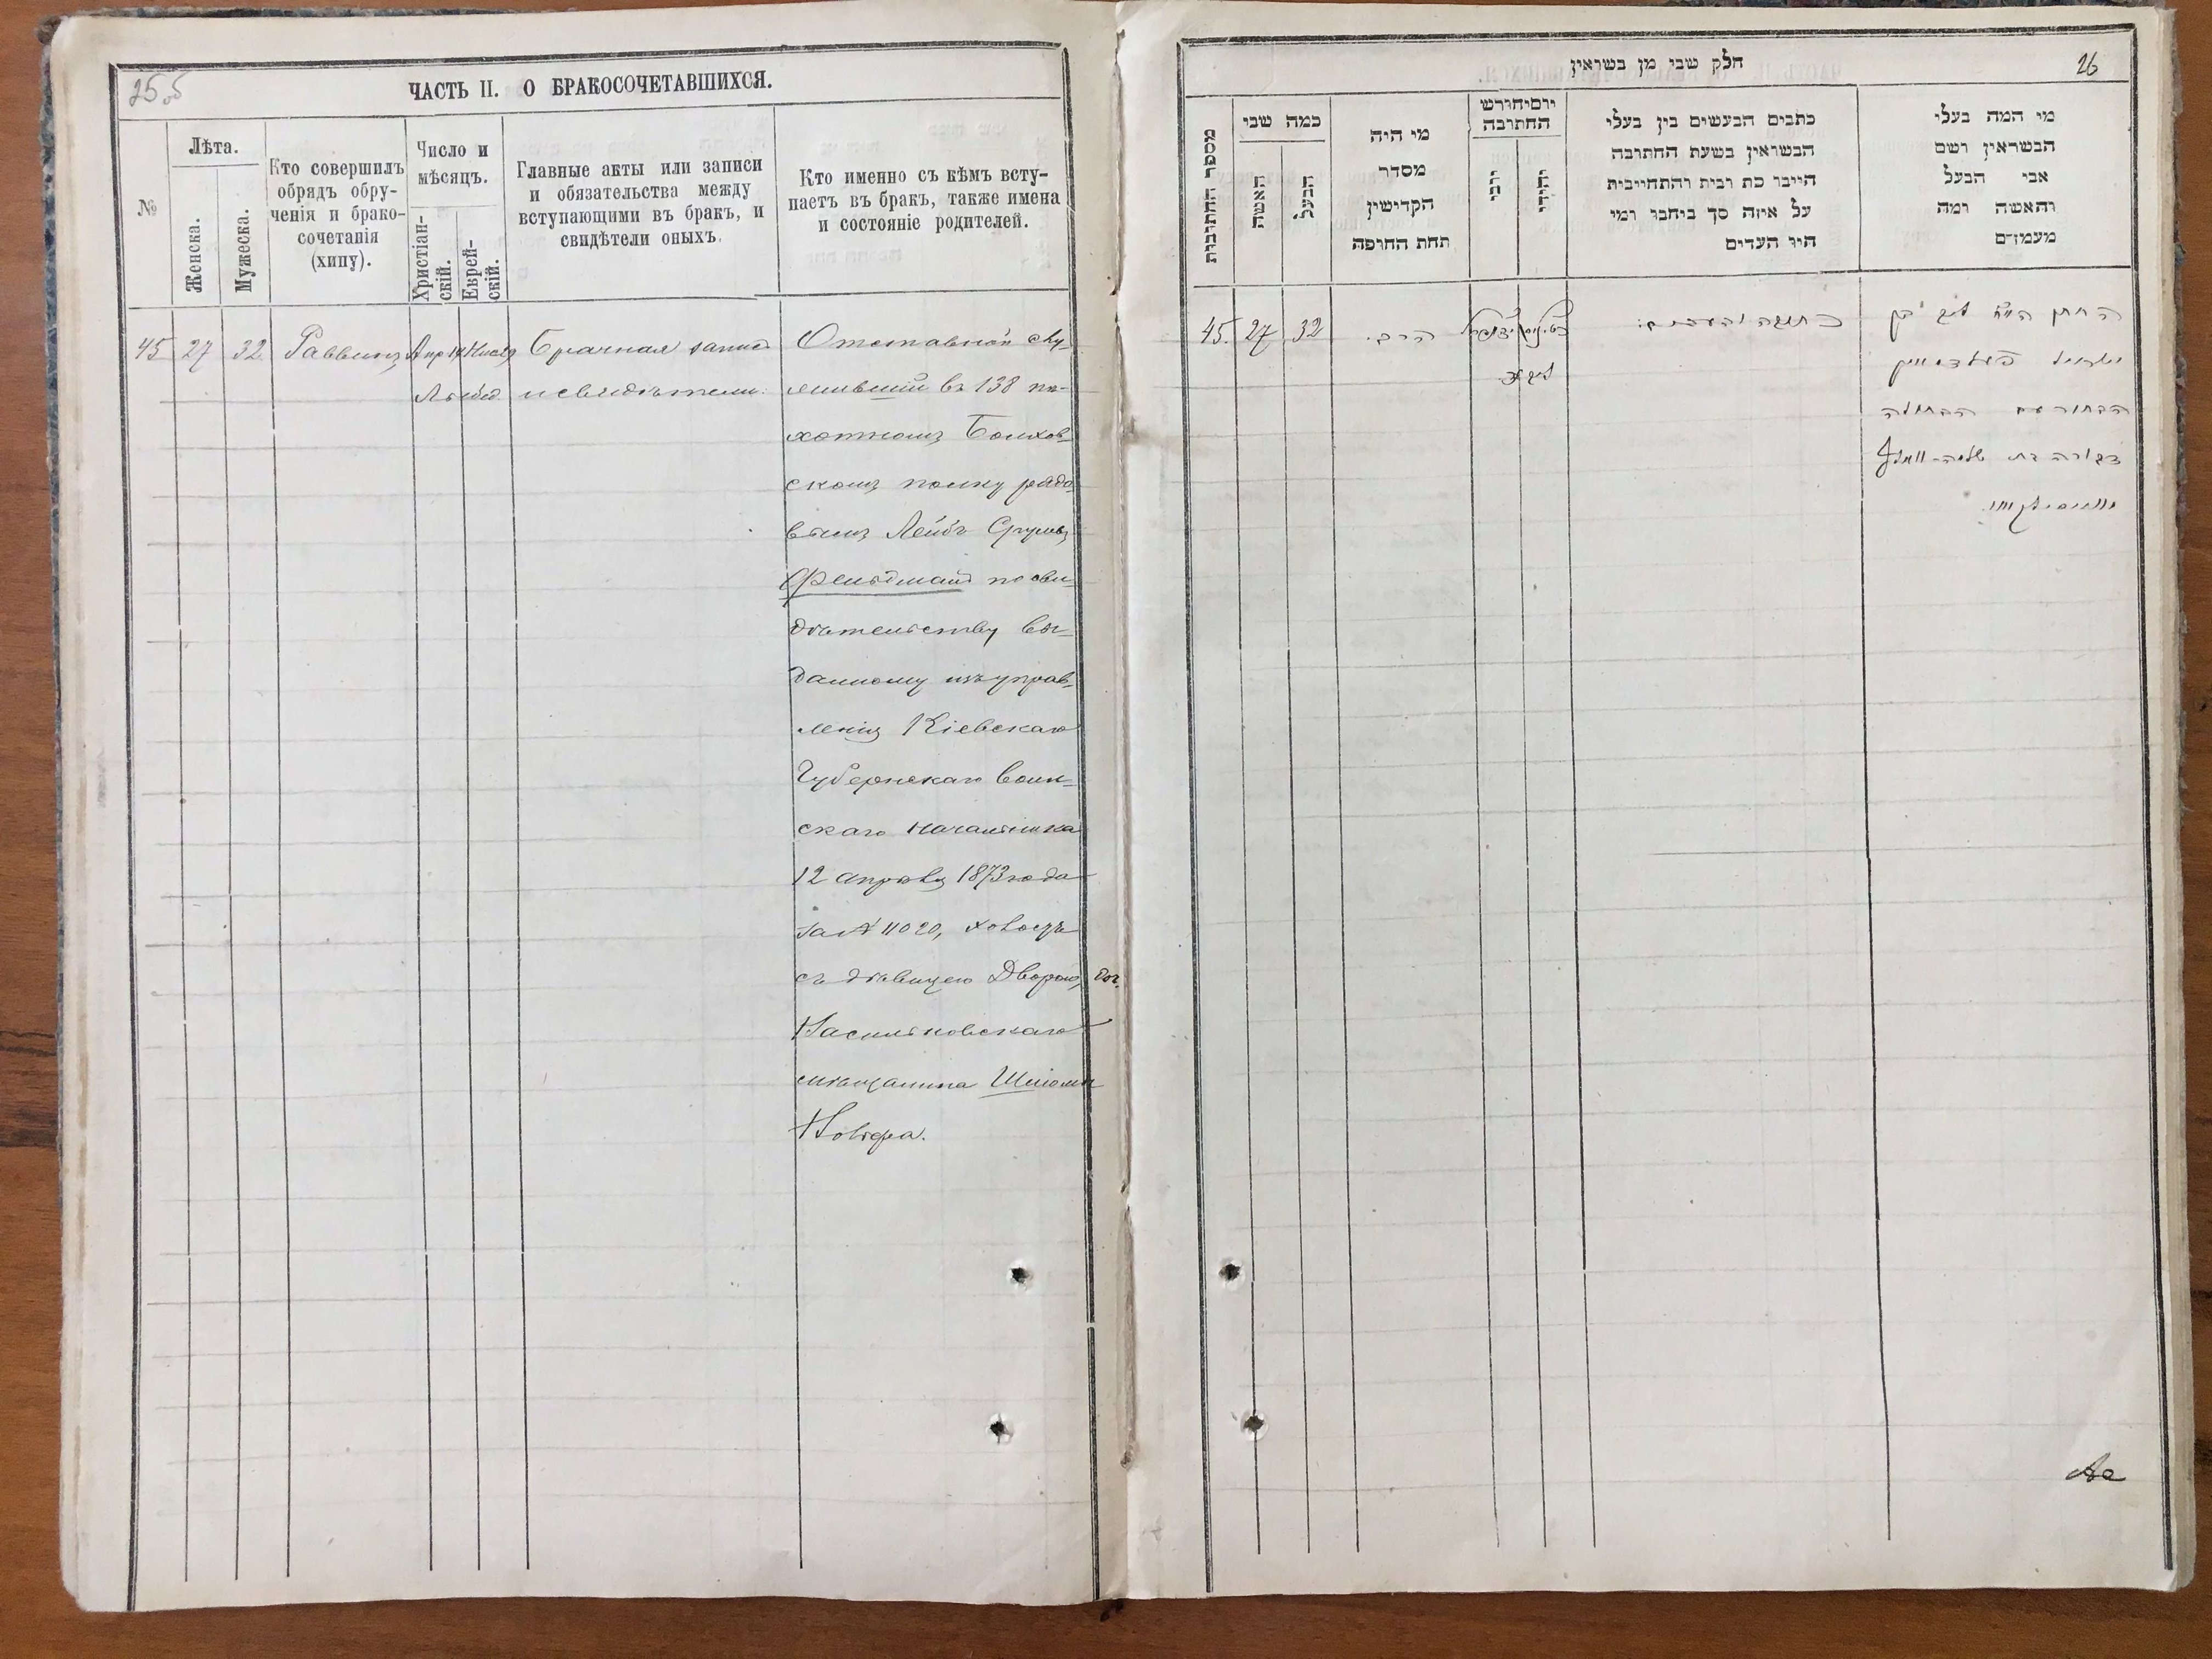 25 об
ЧАСТЬ II. О БРАКОСОЧЕТАВШИХСЯ.
№
Лѣта.
Женска.
Мужеска.
Кто совершилъ
обрядъ обру-
ченія и брако-
сочетанія
(хипу).
Число и
мѣсяцъ.
Христіан-
скій.
Еврей-
скій.
Главные акты или записи
и обязательства между
вступающими въ бракъ, и
свидѣтели оныхъ.
Кто именно съ кѣмъ всту-
паетъ въ бракъ, также имена
и состояніе родителей.
45 27 32 Раввинъ
Брачная запись
и свидѣтели.
Отставной слу-
жившій въ 138 пѣ-
хотномъ Болхов-
скомъ полку рядо-
вымъ Лейбъ Срулевъ
Фельдманъ по сви-
дѣтельству вы-
данному изъ управ-
ленія Кіевскаго
Губернскаго воин-
скаго начальника
12 апрѣля 1873 года
за № 11020,
съ дѣвицею Дворою, доч.
Васильковскаго
мѣщанина Шліомы
26
חלק שבי מן בשראין
מספר החתובית
כמה שבי
האשה
הבעל
מי היה
מסדר
הקדישין
תחת החופה
יוםיחורש
החתובה
כתבים הבעשים בין בעלי
הבשראין בשעת החתובה
הייבר כת רבית והתחייבית
על איזה סך ביחבו ומי
היו העדים
מי המה בעלי
הבשראין ושם
אבי הבעל
והאשה ומה
מעמז־ם
45. 27 32
הרב.
כתובה ועדים.
ישראל פעלדמאן
הבחור עם הבתולה